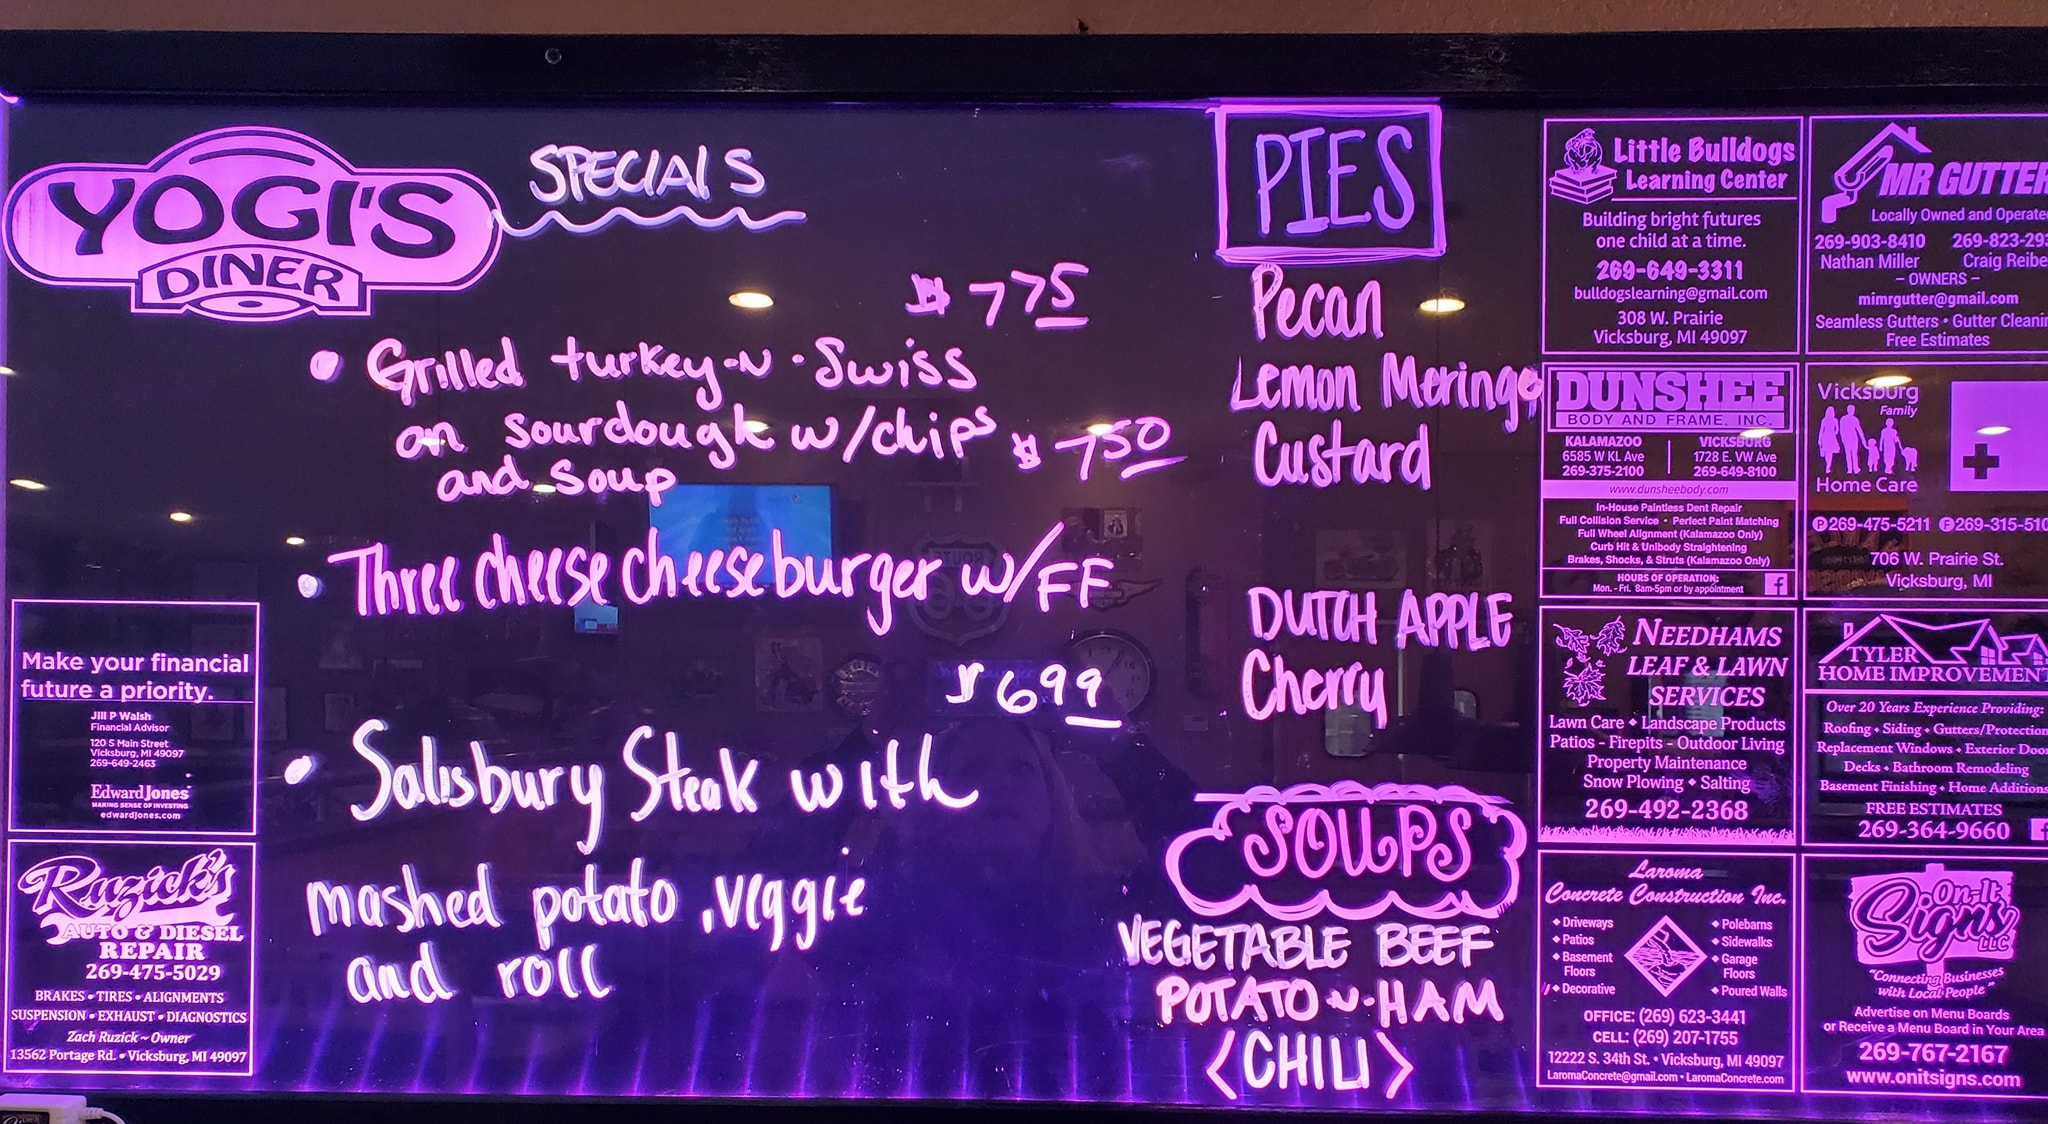 YOGI'S
DINER
SPECIALS
$775
• Grilled turkey-n-Swiss
on sourdough w/chips
and soup
$750
• Three cheese cheeseburger w/FF
$699
• Salisbury Steak with
mashed potato, veggie
and roll
PIES
Pecan
Lemon Meringe
Custard
DUTCH APPLE
Cherry
SOUPS
VEGETABLE BEEF
POTATO-N-HAM
<CHILI>
Make your financial
future a priority.
Jill P Walsh
Financial Advisor
120 S Main Street
Vicksburg, MI 49097
269-649-2463
Edward Jones
MAKING SENSE OF INVESTING
edwardjones.com
Ruzick's
AUTO & DIESEL
REPAIR
269-475-5029
BRAKES • TIRES • ALIGNMENTS
SUSPENSION • EXHAUST • DIAGNOSTICS
Zach Ruzick ~ Owner
13562 Portage Rd. • Vicksburg, MI 49097
Little Bulldogs
Learning Center
Building bright futures
one child at a time.
269-649-3311
bulldogslearning@gmail.com
308 W. Prairie
Vicksburg, MI 49097
MR GUTTER
Locally Owned and Operate
269-903-8410 269-823-293
Nathan Miller Craig Reibe
– OWNERS –
mimrgutter@gmail.com
Seamless Gutters • Gutter Cleanin
Free Estimates
DUNSHEE
BODY AND FRAME, INC.
KALAMAZOO
6585 W KL Ave
269-375-2100
VICKSBURG
1728 E. VW Ave
269-649-8100
www.dunsheebody.com
In-House Paintless Dent Repair
Full Collision Service • Perfect Paint Matching
Full Wheel Alignment (Kalamazoo Only)
Curb Hit & Unibody Straightening
Brakes, Shocks, & Struts (Kalamazoo Only)
HOURS OF OPERATION:
Mon. - Fri. 8am-5pm or by appointment
Vicksburg
Family
Home Care
P 269-475-5211 F 269-315-510
706 W. Prairie St.
Vicksburg, MI
NEEDHAMS
LEAF & LAWN
SERVICES
Lawn Care • Landscape Products
Patios - Firepits - Outdoor Living
Property Maintenance
Snow Plowing • Salting
269-492-2368
TYLER
HOME IMPROVEMENT
Over 20 Years Experience Providing:
Roofing • Siding • Gutters/Protection
Replacement Windows • Exterior Door
Decks • Bathroom Remodeling
Basement Finishing • Home Additions
FREE ESTIMATES
269-364-9660
Laroma
Concrete Construction Inc.
• Driveways
• Patios
• Basement
Floors
• Decorative
• Polebarns
• Sidewalks
• Garage
Floors
• Poured Walls
OFFICE: (269) 623-3441
CELL: (269) 207-1755
12222 S. 34th St. • Vicksburg, MI 49097
LaromaConcrete@gmail.com • LaromaConcrete.com
On-It
Signs
LLC
"Connecting Businesses
with Local People"
Advertise on Menu Boards
or Receive a Menu Board in Your Area
269-767-2167
www.onitsigns.com